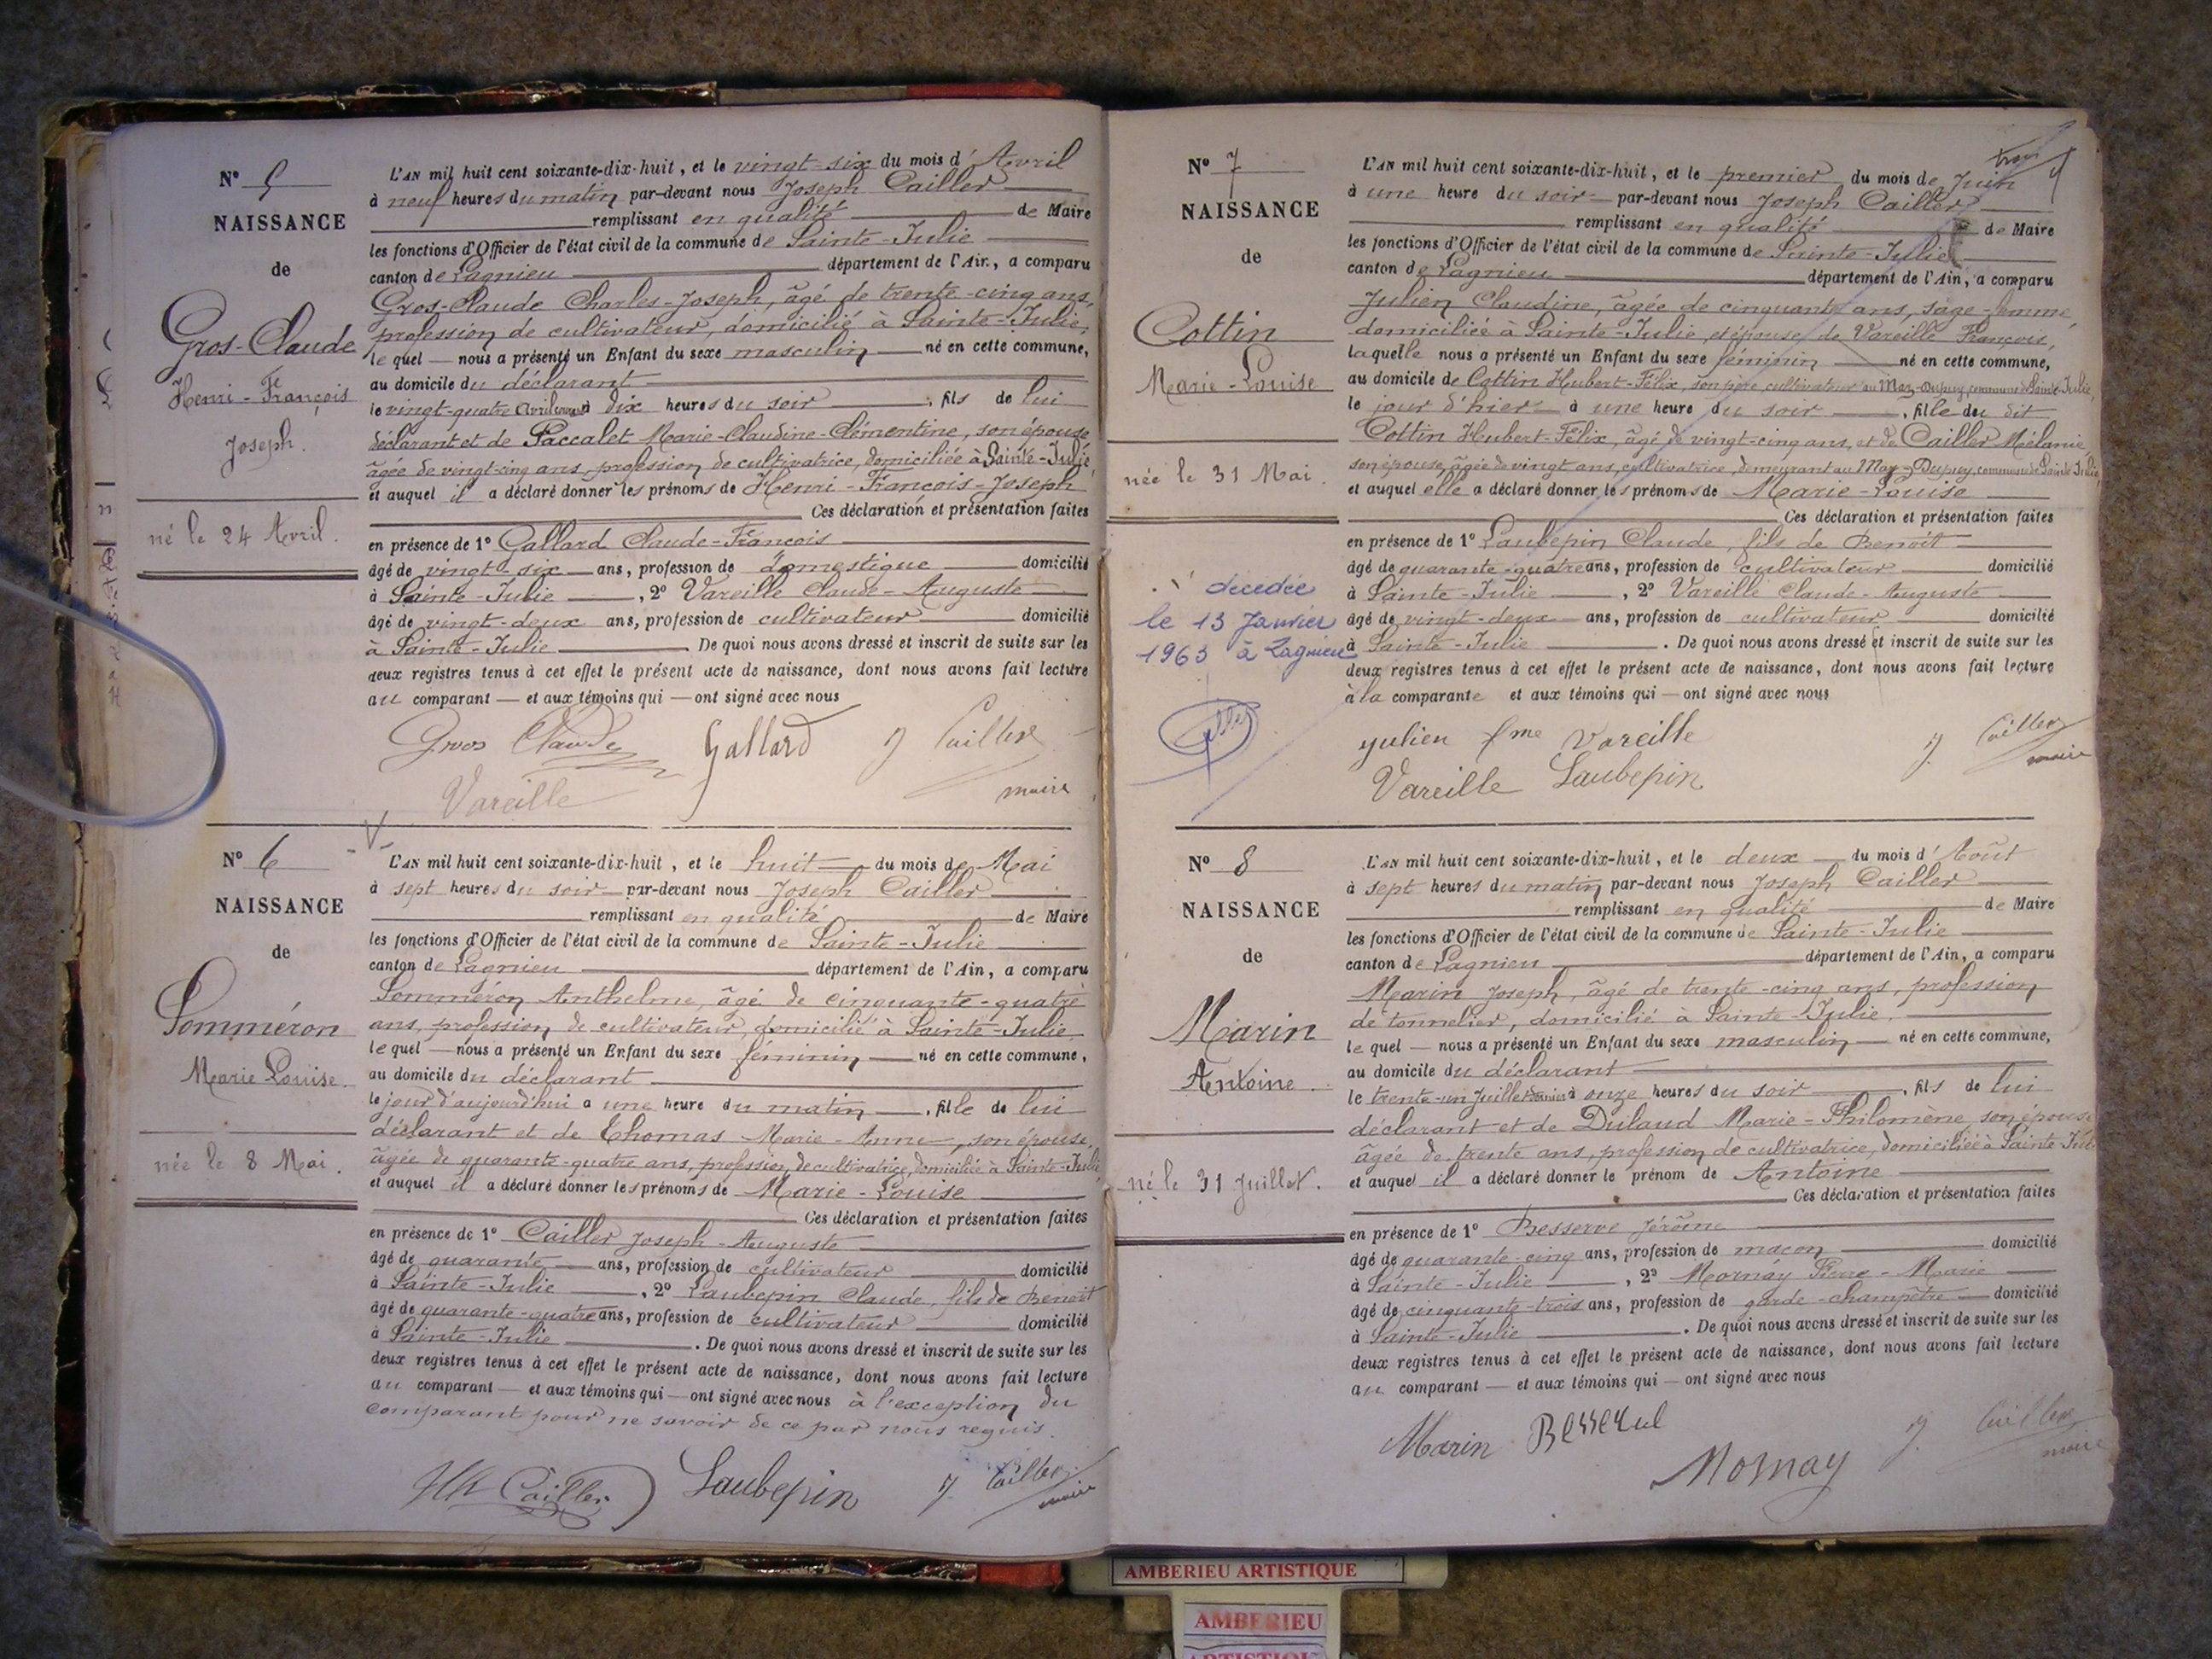 N° 5
NAISSANCE
de
Gros-Claude
Henri-François
Joseph.
né le 24 Avril.
L'AN mil huit cent soixante-dix-huit, et le vingt-six du mois d'Avril
à neuf heures du matin par-devant nous Joseph Cailler
remplissant en qualité de Maire
les fonctions d'Officier de l'état civil de la commune de Sainte-Julie
canton de Lagnieu département de l'Ain, a comparu
Gros-Claude Charles-Joseph, âgé de trente-cinq ans,
profession de cultivateur, domicilié à Sainte-Julie,
le quel — nous a présenté un Enfant du sexe masculin — né en cette commune,
au domicile du déclarant
le vingt-quatre Avril à dix heures du soir, fils de lui
déclarant et de Paccalet Marie-Claudine-Clémentine, son épouse,
âgée de vingt-cinq ans, profession de cultivatrice, domiciliée à Sainte-Julie,
et auquel il a déclaré donner les prénoms de Henri-François-Joseph
Ces déclaration et présentation faites
en présence de 1° Gallard Claude-François
âgé de vingt-six ans, profession de domestique domicilié
à Sainte-Julie, 2° Vareille Claude-Auguste
âgé de vingt-deux ans, profession de cultivateur domicilié
à Sainte-Julie. De quoi nous avons dressé et inscrit de suite sur les
deux registres tenus à cet effet le présent acte de naissance, dont nous avons fait lecture
au comparant — et aux témoins qui — ont signé avec nous
Gros Claude Gallard J Cailler
Vareille maire
N° 6
NAISSANCE
de
Somméron
Marie Louise.
née le 8 Mai.
L'AN mil huit cent soixante-dix-huit, et le huit du mois de Mai
à sept heures du soir par-devant nous Joseph Cailler
remplissant en qualité de Maire
les fonctions d'Officier de l'état civil de la commune de Sainte-Julie
canton de Lagnieu département de l'Ain, a comparu
Somméron Anthelme, âgé de cinquante-quatre
ans, profession de cultivateur, domicilié à Sainte-Julie
le quel — nous a présenté un Enfant du sexe féminin — né en cette commune,
au domicile du déclarant
le jour d'aujourd'hui à une heure du matin, fille de lui
déclarant et de Thomas Marie-Anne, son épouse,
âgée de quarante-quatre ans, profession de cultivatrice, domiciliée à Sainte-Julie,
et auquel il a déclaré donner les prénoms de Marie-Louise
Ces déclaration et présentation faites
en présence de 1° Cailler Joseph-Auguste
âgé de quarante ans, profession de cultivateur domicilié
à Sainte-Julie, 2° Laubepin Claude, fils de Benoit
âgé de quarante-quatre ans, profession de cultivateur domicilié
à Sainte-Julie. De quoi nous avons dressé et inscrit de suite sur les
deux registres tenus à cet effet le présent acte de naissance, dont nous avons fait lecture
au comparant — et aux témoins qui — ont signé avec nous à l'exception du
comparant pour ne savoir de ce par nous requis.
Cailler Laubepin J. Cailler
maire
N° 7
NAISSANCE
de
Cottin
Marie-Louise
née le 31 Mai.
décédée
le 13 Janvier
1963 à Lagnieu
L'AN mil huit cent soixante-dix-huit, et le premier du mois de Juin
à une heure du soir par-devant nous Joseph Cailler
remplissant en qualité de Maire
les fonctions d'Officier de l'état civil de la commune de Sainte-Julie
canton de Lagnieu département de l'Ain, a comparu
Julien Claudine, âgée de cinquante ans, sage-femme,
domiciliée à Sainte-Julie, épouse de Vareille François,
laquelle nous a présenté un Enfant du sexe féminin né en cette commune,
au domicile de Cottin Hubert-Félix, son père cultivateur au Maz-Dupuy, commune de Sainte-Julie,
le jour d'hier à une heure du soir, fille du dit
Cottin Hubert-Félix, âgé de vingt-cinq ans, et de Cailler Mélanie
son épouse, âgée de vingt ans, cultivatrice, demeurant au Maz-Dupuy, commune de Sainte Julie,
et auquel elle a déclaré donner les prénoms de Marie-Louise
Ces déclaration et présentation faites
en présence de 1° Laubepin Claude, fils de Benoît
âgé de quarante-quatre ans, profession de cultivateur domicilié
à Sainte-Julie, 2° Vareille Claude-Auguste
âgé de vingt-deux ans, profession de cultivateur domicilié
à Sainte-Julie. De quoi nous avons dressé et inscrit de suite sur les
deux registres tenus à cet effet le présent acte de naissance, dont nous avons fait lecture
à la comparante et aux témoins qui — ont signé avec nous
Julien fme Vareille J. Cailler
Vareille Laubepin maire
N° 8
NAISSANCE
de
Marin
Antoine.
né le 31 Juillet.
L'AN mil huit cent soixante-dix-huit, et le deux du mois d'Août
à sept heures du matin par-devant nous Joseph Cailler
remplissant en qualité de Maire
les fonctions d'Officier de l'état civil de la commune de Sainte-Julie
canton de Lagnieu département de l'Ain, a comparu
Marin Joseph, âgé de trente-cinq ans, profession
de tonnelier, domicilié à Sainte-Julie,
le quel — nous a présenté un Enfant du sexe masculin — né en cette commune,
au domicile du déclarant
le trente-un Juillet dernier à onze heures du soir, fils de lui
déclarant et de Dulaud Marie-Philomène, son épouse
âgée de trente ans, profession de cultivatrice, domiciliée à Sainte-Julie
et auquel il a déclaré donner le prénom de Antoine
Ces déclaration et présentation faites
en présence de 1° Besserve Jérôme
âgé de quarante-cinq ans, profession de maçon domicilié
à Sainte-Julie, 2° Mornay Pierre-Marie
âgé de cinquante-trois ans, profession de garde-champêtre domicilié
à Sainte-Julie. De quoi nous avons dressé et inscrit de suite sur les
deux registres tenus à cet effet le présent acte de naissance, dont nous avons fait lecture
au comparant — et aux témoins qui — ont signé avec nous
Marin J. Cailler
Mornay maire
AMBERIEU ARTISTIQUE
AMBERIEU
ARTISTIQUE